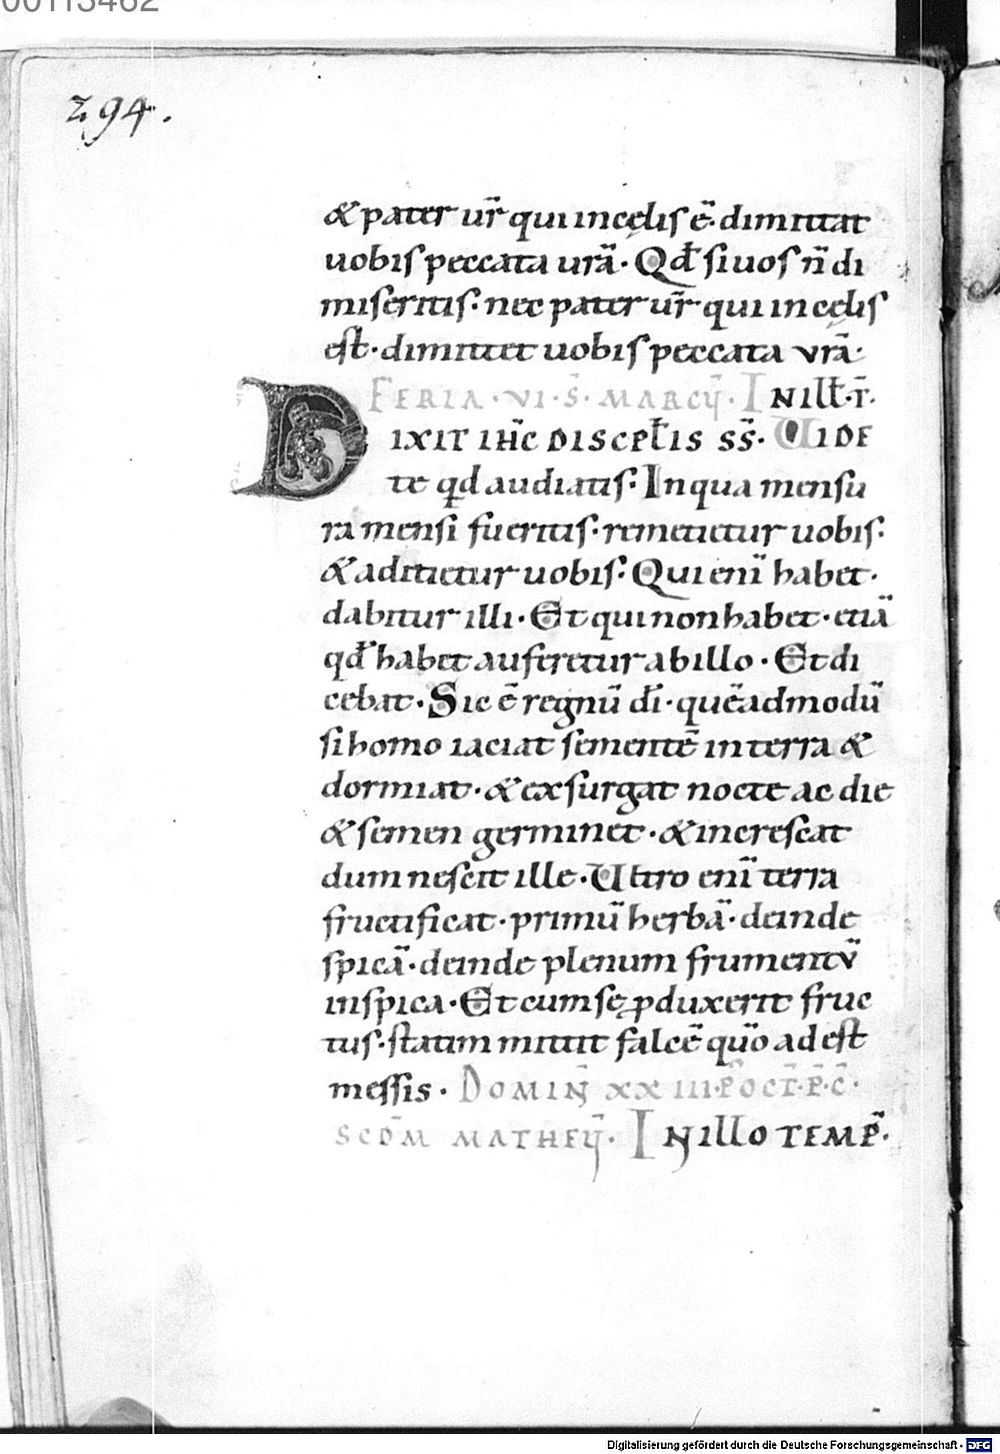 00113462
294.
& pater ur̄ qui in cęlis ē· dimittat
uobis peccata urā· Qđ si uos n̄ di
miseritis· nec pater ur̄ qui in cęlis
est· dimittet uobis peccata vrā·
FERIA·VI·S̄·MARCIJ· IN ILŁ·T̄·
DIXIT IHC̄ DISCEPŁIS SS̄· UIDE
te qd audiatis· In qua mensu
ra mensi fueritis· remetietur uobis·
& adicietur uobis· Qui eni̅ habet·
dabitur illi· Et qui non habet· etiā
qđ habet auferetur ab illo· Et di
cebat· Sic ē regnū dī· quēadmodū
si homo iaciat sementē in terra &
dormiat· & exsurgat nocte ac die
& semen germinet· & increscat
dum nescit ille· Ultro eni̅ terra
fructificat· primū herbā· deinde
spicā· deinde plenum frumentv̄
in spica· Et cum se ꝓduxerit fruc
tus· statim mittit falcē quo̅ adest
messis· DOMIN̄ XXIII·P̄ OCT·P̄·C̄·
SCD̄M MATHEIJ· IN ILLO TEMP̄·
Digitalisierung gefördert durch die Deutsche Forschungsgemeinschaft - DFG